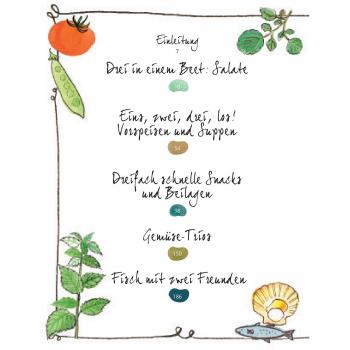 Einleitung
7
Drei in einem Beet: Salate
10
Eins, zwei, drei, los!
Vorspeisen und Suppen
54
Dreifach schnelle Snacks
und Beilagen
98
Gemüse-Trios
150
Fisch mit zwei Freunden
186